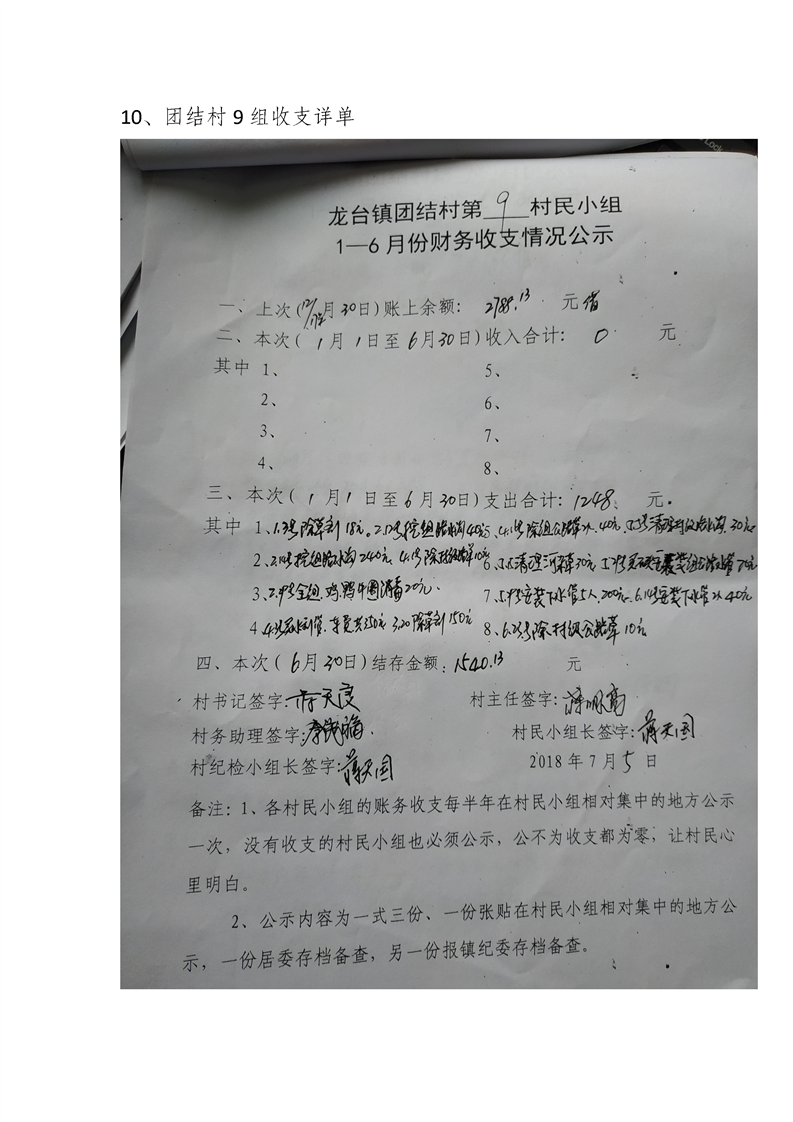 10、团结村 9 组收支详单
龙台镇团结村第 9 村民小组
1—6 月份财务收支情况公示
一、上次(12/17年月30日)账上余额: 2788.13 元
二、本次( 1月 1日至 6月30日)收入合计: 0 元
其中 1、 5、
2、 6、
3、 7、
4、 8、
三、本次( 1月1 日至 6月30日)支出合计: 1248 元
其中 1、1.3号除草剂18元。2.12号挖组 40元 40元 30元
2、2.14号挖组 240元 10元 6、5.5清理河 30元
3、2.9号全组鸡鸭牛圈消毒20元. 7、5.9号安装下水管5人.200元. 6.14号安装下水管2人40元
4、 350元 3.20除草剂150元 8、6.23号除村级公路草10元
四、本次( 6月30日)结存金额: 1540.13 元
村书记签字: 村主任签字:
村务助理签字: 村民小组长签字: 蒋天国
村纪检小组长签字: 蒋天国 2018年7月5日
备注:1、各村民小组的账务收支每半年在村民小组相对集中的地方公示
一次,没有收支的村民小组也必须公示,公不为收支都为零,让村民心
里明白。
2、公示内容为一式三份、一份张贴在村民小组相对集中的地方公
示,一份居委存档备查,另一份报镇纪委存档备查。